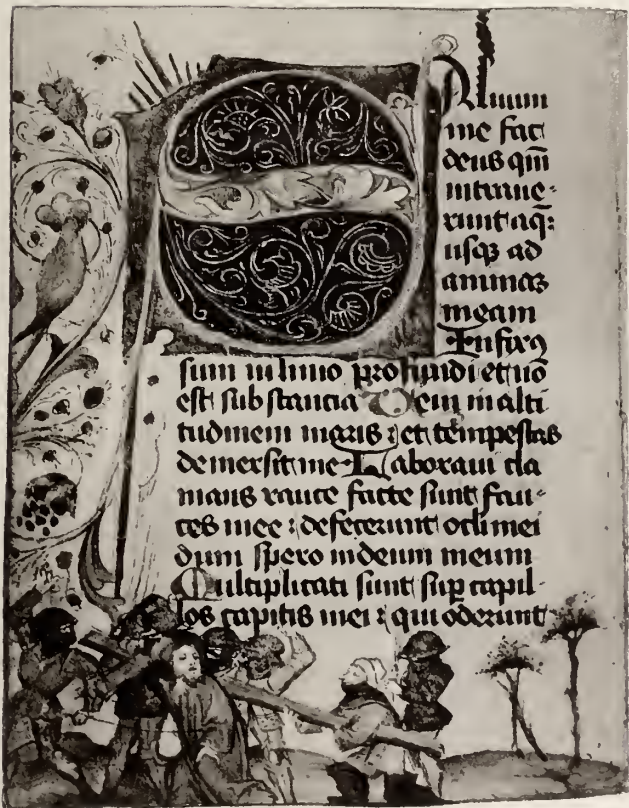 SAluum
me fac
deus qm̄
intraue-
runt aq̄:
usqꝫ ad
animaꝫ
meam
Infixꝰ
sum in limo profundi et nō
est substancia Veni in alti
tudinem maris : et tempestas
demersit me Laboraui cla
mans rauce facte sunt fau-
ces mee : defecerunt ocli mei
dum spero in deum meum
Multiplicati sunt suꝑ capil-
los capitis mei : qui oderunt